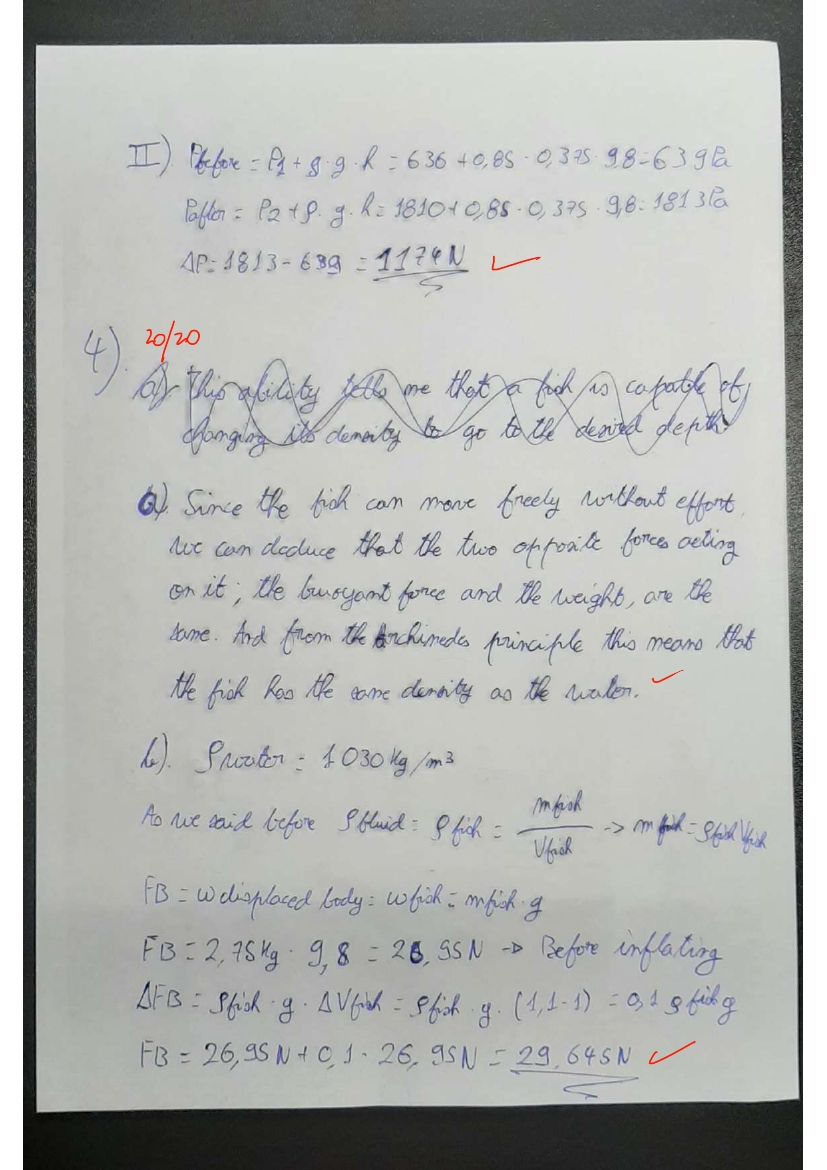 II). Pbefore = P1 + ρ·g·h = 636 + 0,85 · 0,375 · 9,8 = 639 Pa
Pafter = P2 + ρ·g·h = 1810 + 0,85 · 0,375 · 9,8 = 1813 Pa
ΔP = 1813 - 639 = 1174 N
20/20
4).
a) This ability tells me that a fish is capable of
changing its density to go to the desired depth.
a) Since the fish can move freely without effort,
we can deduce that the two opposite forces acting
on it; the buoyant force and the weight, are the
same. And from the Archimedes principle this means that
the fish has the same density as the water.
b). ρwater = 1030 Kg/m³
As we said before ρfluid = ρfish = mfish / Vfish -> mfish = ρfish Vfish
FB = w displaced body = wfish = mfish · g
FB = 2,75 Kg · 9,8 = 26,95 N -> Before inflating
ΔFB = ρfish · g · ΔVfish = ρfish · g · (1,1-1) = 0,1 ρfish g
FB = 26,95 N + 0,1 · 26,95 N = 29,645 N